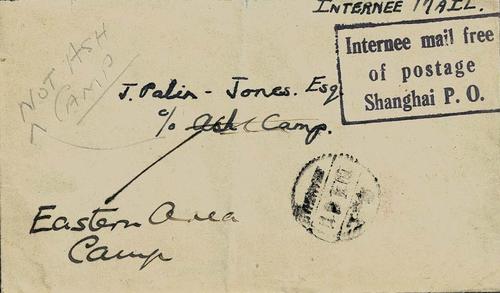 INTERNEE MAIL.
Internee mail free
of postage
Shanghai P. O.
NOT ASH
CAMP
J. Palin - Jones. Esq.
c/o Ash Camp.
Eastern Area
Camp